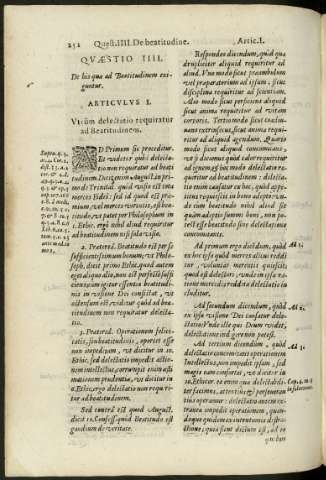 252 Quest. IIII. De beatitudine. Artic. I.
QVÆSTIO IIII.
De his quæ ad Beatitudinem exi-
guntur.
ARTICVLVS I.
Vtrùm delectatio requiratur
ad Beatitudinem.
AD Primum sic proceditur.
Et videtur quòd delecta-
tio non requiratur ad beati-
tudinem. Dicit
de Trinitat. quòd visio est tota
merces Fidei: sed id quod est præ-
mium, vel merces virtutis, est bea-
titudo, vt patet per Philosophum in
1. Ethic. ergo nihil aliud requiritur
ad beatitudinem nisi sola visio.
2. Prætereà. Beatitudo est per se
sufficientissimum bonum, vt Philo-
soph. dicit primo Ethic. quod autem
eget aliquo alio, non est perfectè suffi-
ciens: cum igitur essentia beatitudi-
nis in visione Dei consistat, vt
ostensum est: videtur quòd ad beati-
tudinem non requiratur delecta-
tio.
3. Prætereà. Operationem felici-
tatis, siue beatitudinis, oportet esse
non impeditam, vt dicitur in 10.
Ethic. sed delectatio impedit actio-
nem intellectus, corrumpit enim æsti-
mationem prudentiæ, vt dicitur in
6. Ethic. ergo delectatio non requiri-
tur ad beatitudinem.
Sed contrà est quod August.
dicit 10. Confess. quòd Beatitudo est
gaudium de veritate.
Respondeo dicendum, quòd qua-
drupliciter aliquid requiritur ad
aliud. Vno modo sicut præambulum
vel præparatorium ad ipsum: sicut
disciplina requiritur ad scientiam.
Alio modo sicut perficiens aliquid
sicut anima requiritur ad vitam
corporis. Tertio modo sicut coadiu-
uans extrinsecus, sicut amici requi-
runtur ad aliquid agendum. Quarto
modo sicut aliquid concomitans,
vt si dicamus quòd calor requiritur
ad ignem, & hoc modo delectatio re-
quiritur ad beatitudinem: delecta-
tio enim causatur ex hoc, quòd appe-
titus requiescit in bono adepto: vn-
de cum beatitudo nihil aliud sit
quàm adeptio summi boni, non po-
test esse beatitudo sine delectatione
concomitante.
Ad primum ergo dicendum, quòd Ad 1.
ex hoc ipso quòd merces alicui reddi-
tur, voluntas merentis quiescit,
quod est delectari: vnde in ipsa ra-
tione mercedis redditæ delectatio in-
cluditur.
Ad secundum dicendum, quòd Ad 2.
ex ipsa visione Dei causatur delecta-
tio: Vnde ille qui Deum videt,
delectatione indigere non potest.
Ad tertium dicendum, quòd Ad 3.
delectatio concomitans operationem
intellectus, non impedit ipsam, sed
magis eam confortat, vt dicitur in
10. Ethic. ea enim quæ delectabili-
ter facimus, attentiùs & perseueran-
tiùs operamur: delectatio autem ex-
tranea impedit operationem, quan-
doque quidem ex intentionis distra-
ctione, quia sicut dictum est, ad ea